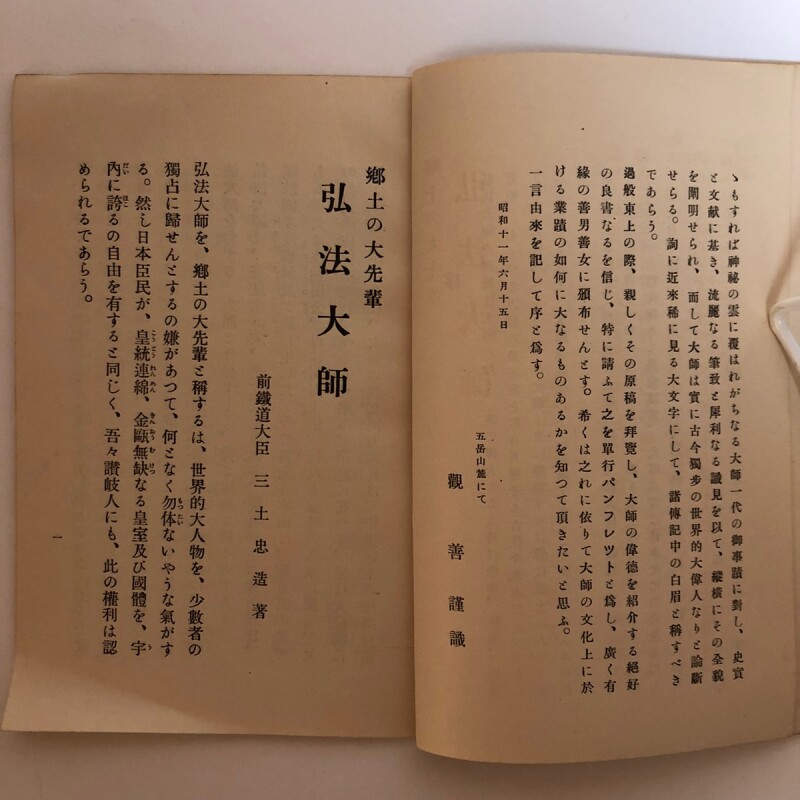 ゝもすれば神祕の雲に覆はれがちなる大師一代の御事蹟に對し、史實
と文献に基き、流麗なる筆致と犀利なる識見を以て、縱横にその全貌
を闡明せられ、而して大師は實に古今獨步の世界的大偉人なりと論斷
せらる。詢に近來稀に見る大文字にして、諸傳記中の白眉と稱すべき
であらう。
過般東上の際、親しくその原稿を拜覽し、大師の偉德を紹介する絕好
の良書なるを信じ、特に請ふて之を單行パンフレツトと爲し、廣く有
緣の善男善女に頒布せんとす。希くは之れに依りて大師の文化上に於
ける業蹟の如何に大なるものあるかを知つて頂きたいと思ふ。
一言由來を記して序と爲す。
昭和十一年六月十五日
五岳山麓にて
觀善謹識
鄕土の大先輩
弘法大師
前鐵道大臣 三土忠造著
弘法大師を、鄕土の大先輩と稱するは、世界的大人物を、少數者の
獨占に歸せんとするの嫌があつて、何となく勿体ないやうな氣がす
る。然し日本臣民が、皇統連綿、金甌無缺なる皇室及び國體を、宇
內に誇るの自由を有すると同じく、吾々讃岐人にも、此の權利は認
められるであらう。
一